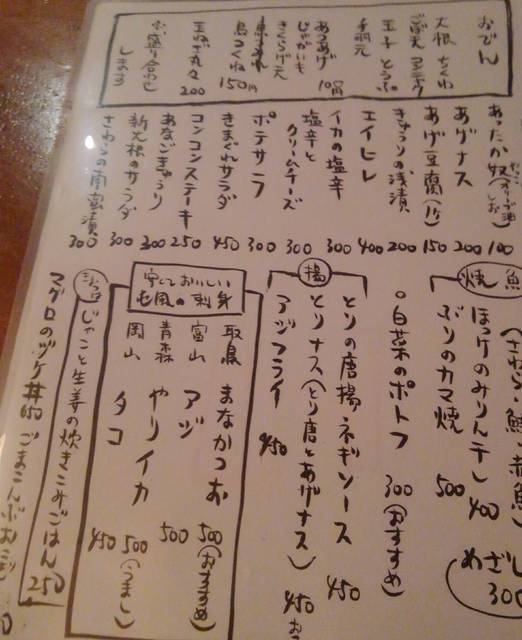 おでん
大根 ちくわ
ごぼ天
玉子 とうふ
手羽元
あつあげ
じゃがいも
100円
きくらげ天
鳥つくね 150円
玉ねぎ丸々 200
お盛り合わせ
します
あったか奴(オリーブ油 しお) 100
アゲナス 200
あげ豆腐(1ケ) 150
きゅうりの浅漬 200
エイヒレ 400
イカの塩辛 300
塩辛と
クリームチーズ 300
ポテサラ 300
きまぐれサラダ 450
コンコンステーキ 250
あなごきゅうり 300
新大根のサラダ 300
さわらの南蛮漬 300
焼 魚
(さわら・鯖 赤魚)
ほっけのみりん干し 400
ぶりのカマ焼 500
めざし 300
○白菜のポトフ 300(おすすめ)
揚
とりの唐揚 ネギソース 450
とりナス(とり唐とアゲナス) 450
アジフライ 450
安くておいしい
七風の刺身
取鳥 まなかつお 500(おすすめ)
富山 アジ 500
青森 やりイカ 500(うまし)
岡山 タコ 450
じゃこと生姜の炊きこみごはん 250
マグロのヅケ丼 650
ごまこんぶおにぎり